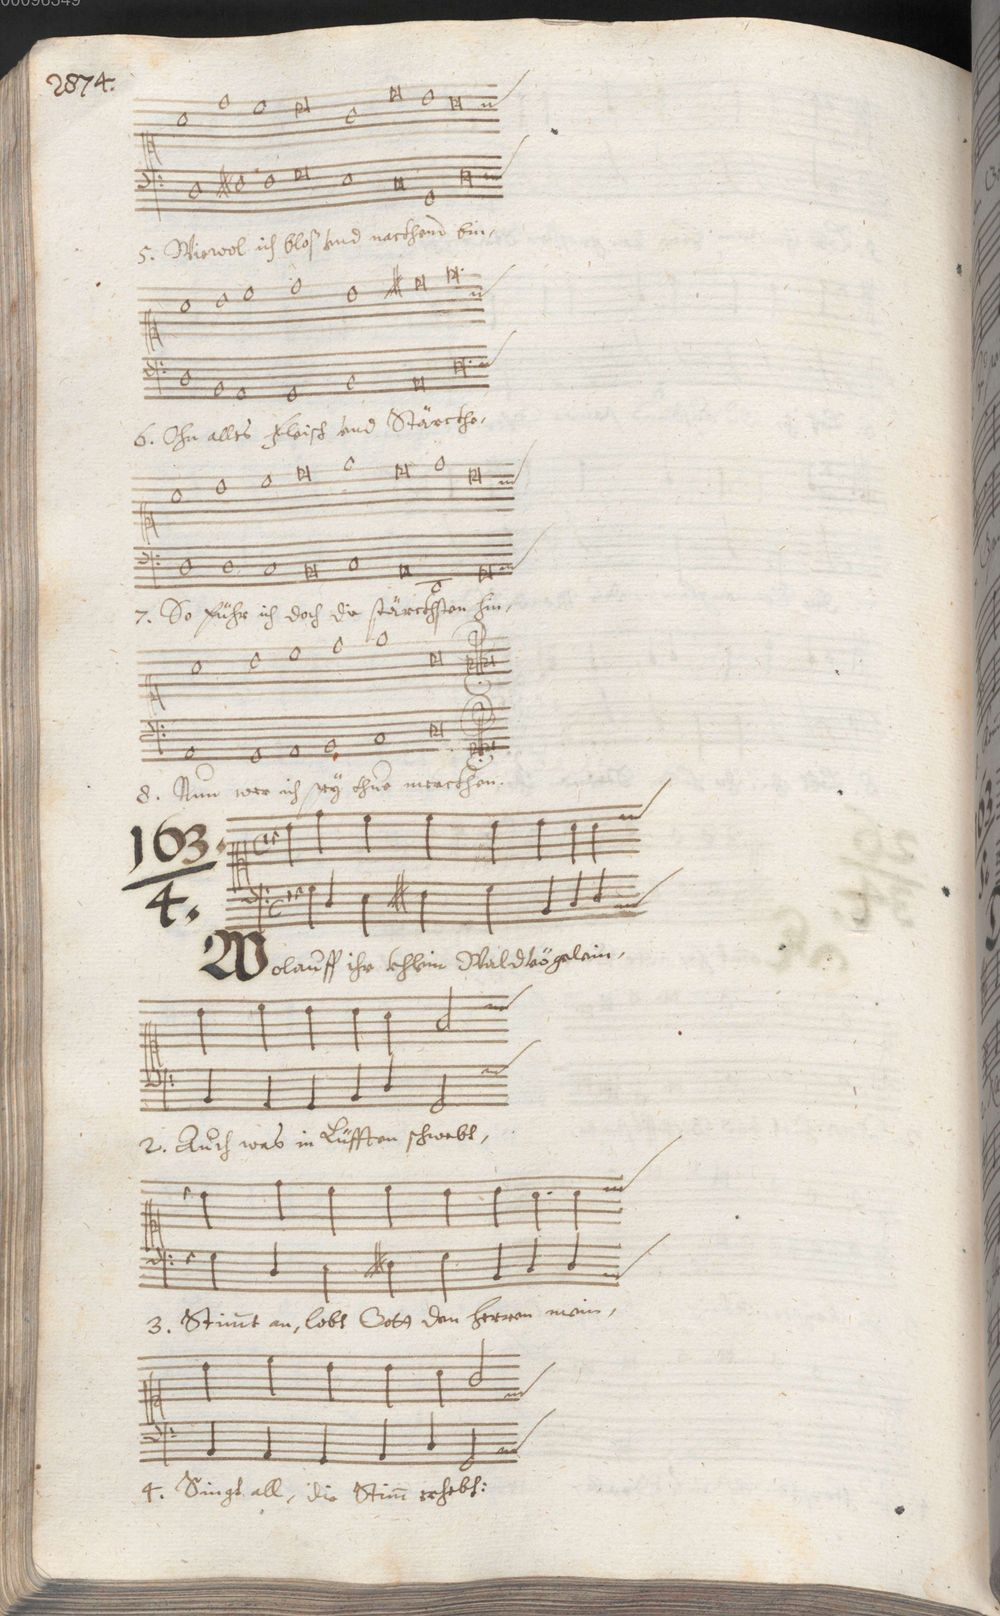 2874.
5. Wiewol ich bloß vnd nacthend bin,
6. Ohn alles fleisch vnd Stärcthe,
7. So führ ich doch die stärcthsten hin,
8. Nun wer ich sey ohne mercthen.
163.
4.
Wolauff ihr khlein Waldvögelein,
2. Auch was in Lüfften schwebt,
3. Stim̄t an, lobt Gott den herren mein,
4. Singt all, die Stim̄ erhebt: